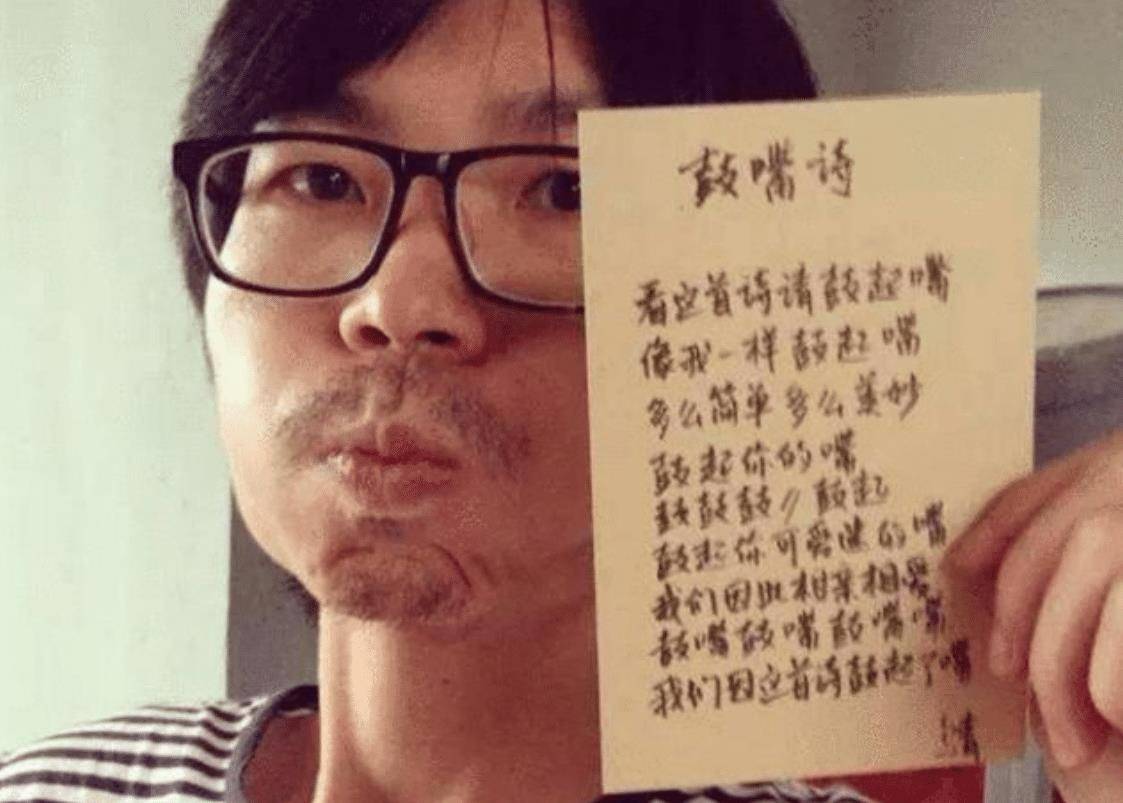 鼓嘴诗
看这首诗请鼓起嘴
像我一样鼓起嘴
多么简单多么美妙
鼓起你的嘴
鼓鼓鼓//鼓起
鼓起你可爱的嘴
我们因此相亲相爱
鼓嘴鼓嘴鼓嘴嘴
我们因这首诗鼓起了嘴